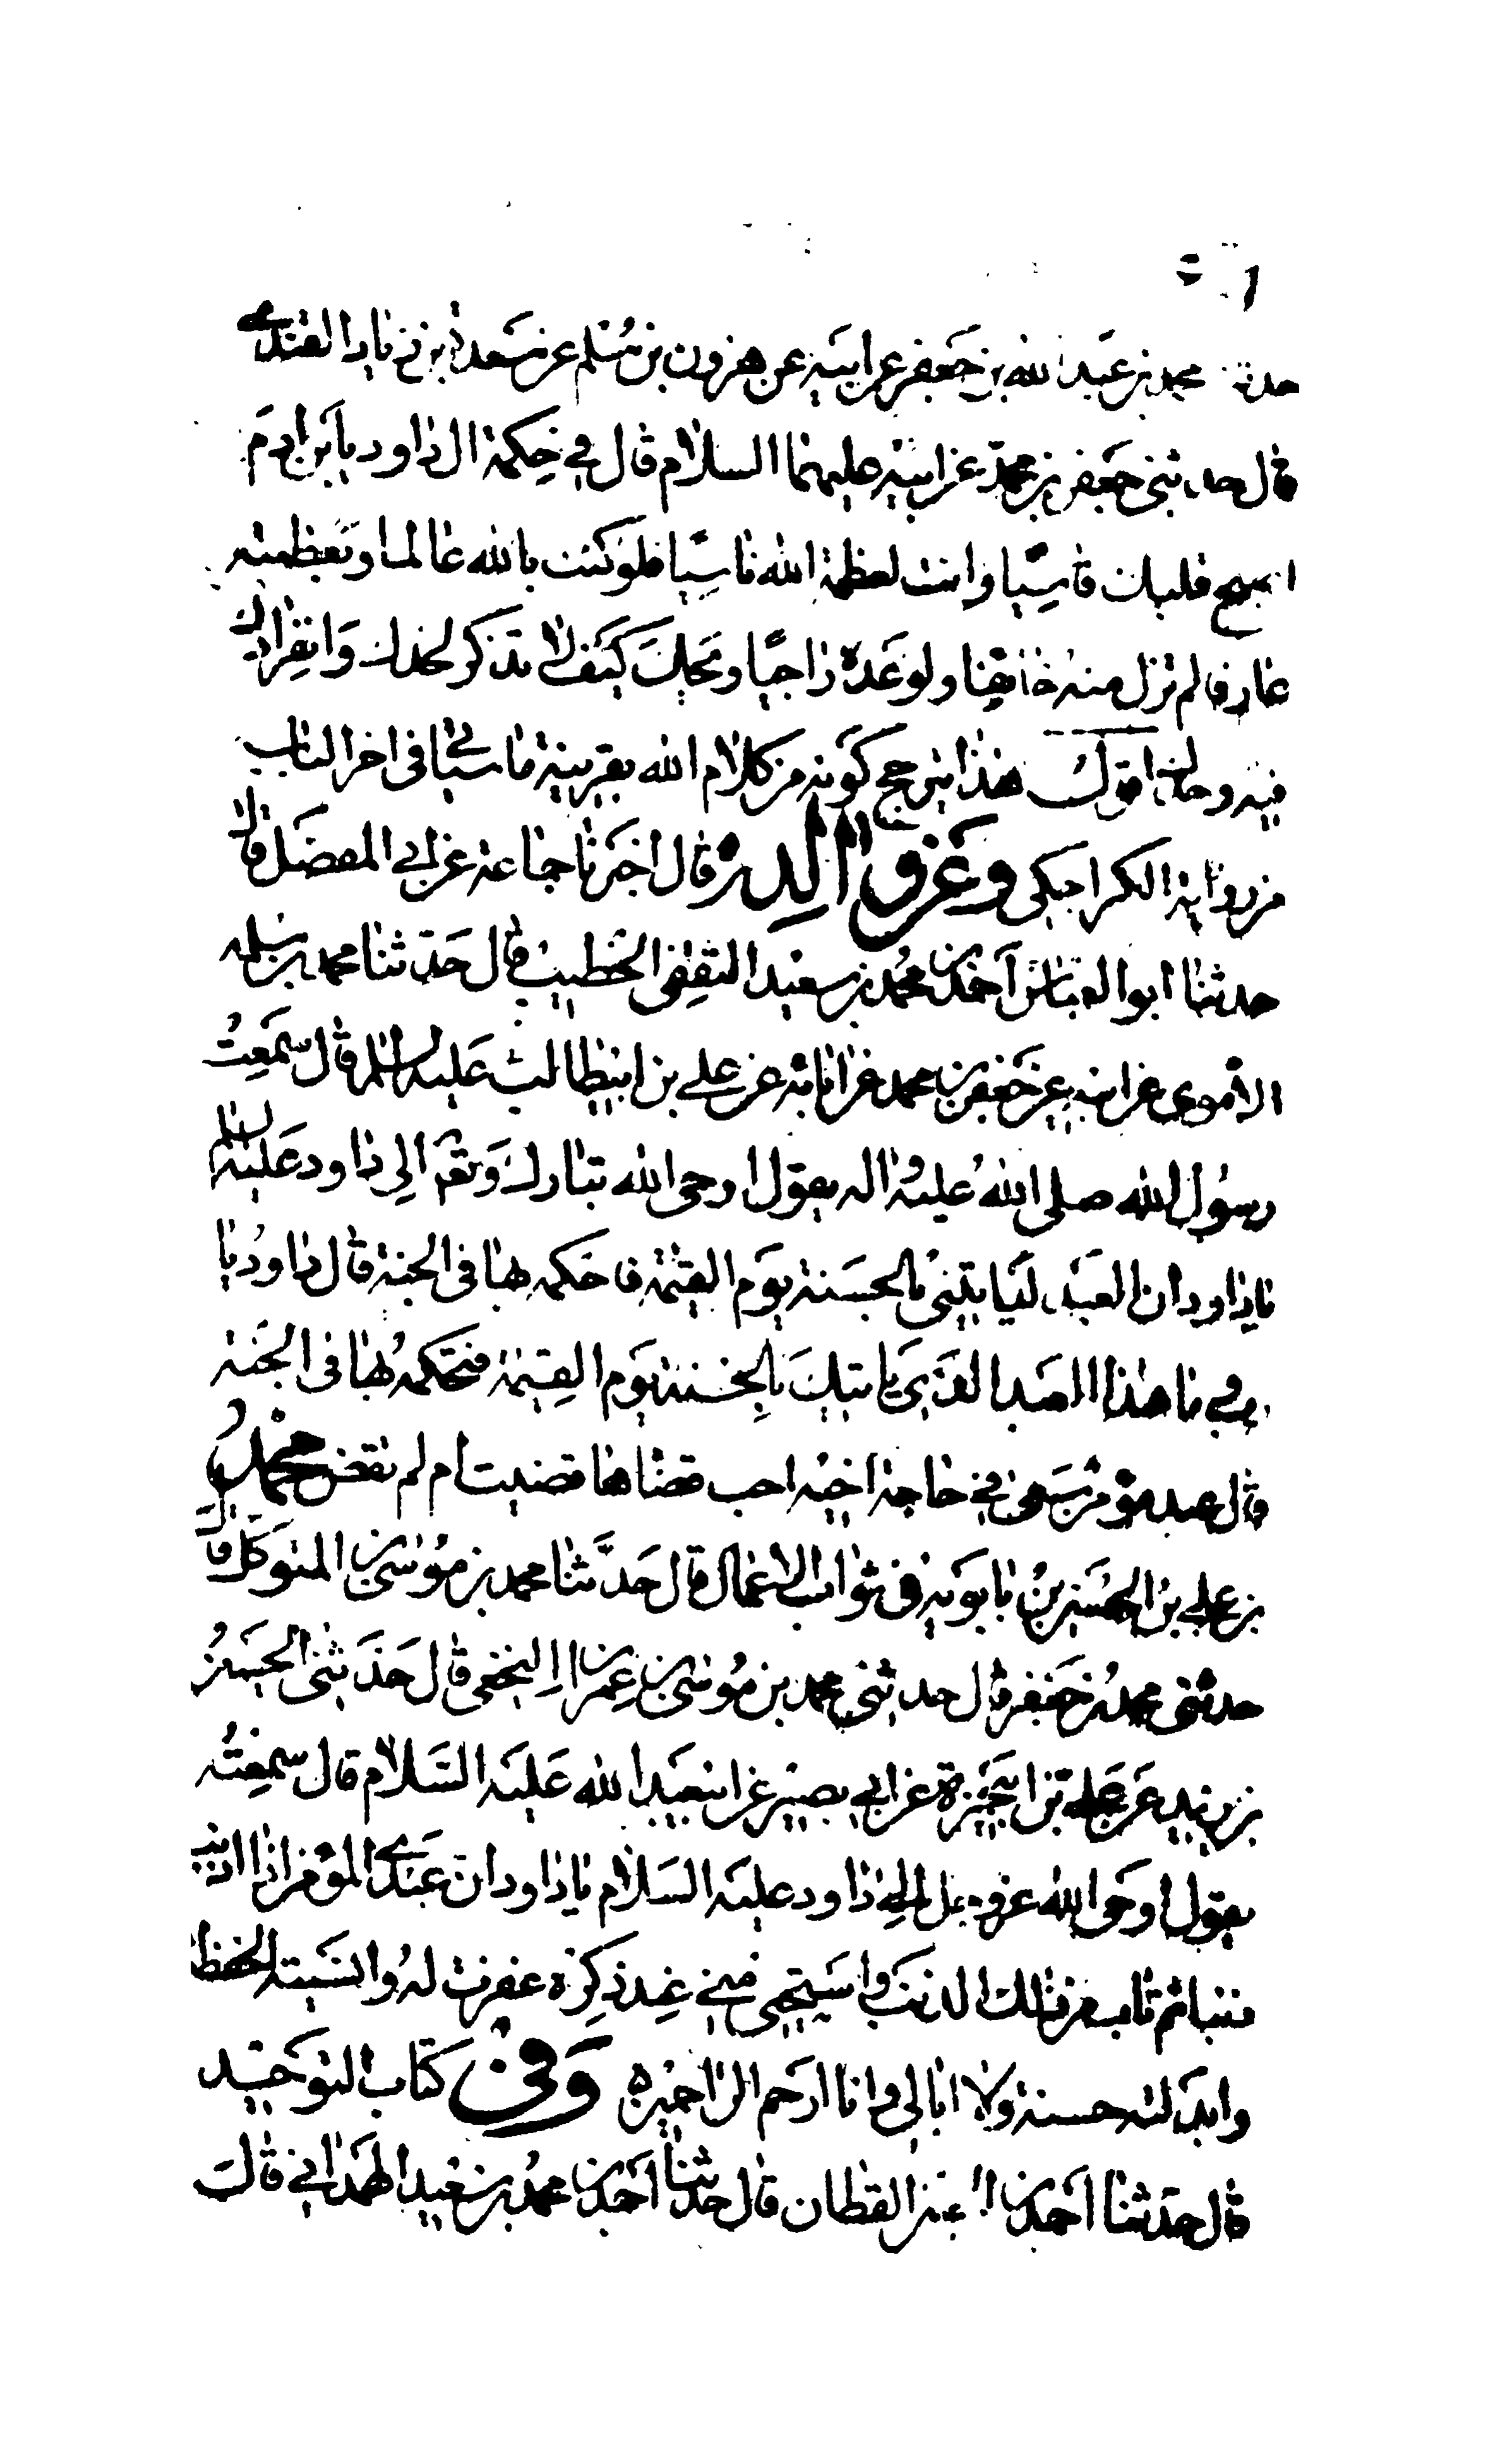 حدثنا محمد بن عبد الله بن جعفر عن ابيه عن هرون بن مسلم عن مسعدة بن زياد العبدي
قال حدثني جعفر بن محمد عن ابيه عليهما السلام قال في حكمة ال داود يابن ادم
اصبح قلبك قاسيا وانت لعظمة الله ناسيا فلو كنت بالله عالما وبعظمته
عارفا لم تزل منه خائفا ولوعده راجيا ويحك كيف لا تذكر لحدك وانفرادك
فيه وحدك اقول هذا يرجح كونه من كلام الله بقرينة ما سيأتي في اخر الباب
من رواية الكراجكي وعن قال اخبرنا جماعة عن ابي المفضل قال
حدثنا ابو العباس احمد بن محمد بن سعيد الثقفي الخطيب قال حدثنا محمد بن سلمه
الاموي عن ابيه عن جعفر بن محمد عن ابائه عن علي بن ابيطالب عليه السلام قال سمعت
رسول الله صلى الله عليه واله يقول اوحى الله تبارك وتعم الى داود عليه السلام
ياداود ان العبد ليأتيني بالحسنة يوم القيمة فاحكمه بها في الجنة قال داود يا
رب ما هذا العبد الذي يأتيك بالحسنة يوم القيمة فتحكمه بها في الجنة
قال عبد مؤمن سعى في حاجة اخيه احب قضاها قضيت ام لم تقض محمد
بن علي بن الحسين بن بابويه في ثواب الاعمال قال حدثنا محمد بن موسى بن المتوكل قال
حدثني محمد بن جعفر قال حدثني محمد بن موسى بن عمران النخعي قال حدثني الحسين بن
بن يزيد عن علي بن ابيحمزة عن ابي بصير عن ابيعبد الله عليه السلام قال سمعته
يقول اوحى الله عز وجل الى داود عليه السلام ياداود ان عبدي المؤمن اذا اذنب
ذنبا ثم تاب من ذلك الذنب واستحيى مني عند ذكره غفرت له وانسيته الحفظة
وابدلته حسنة ولا ابالي وانا ارحم الراحمين وفي كتاب التوحيد
قال حدثنا احمد بن القطان قال حدثنا احمد بن محمد بن سعيد الهمداني قال